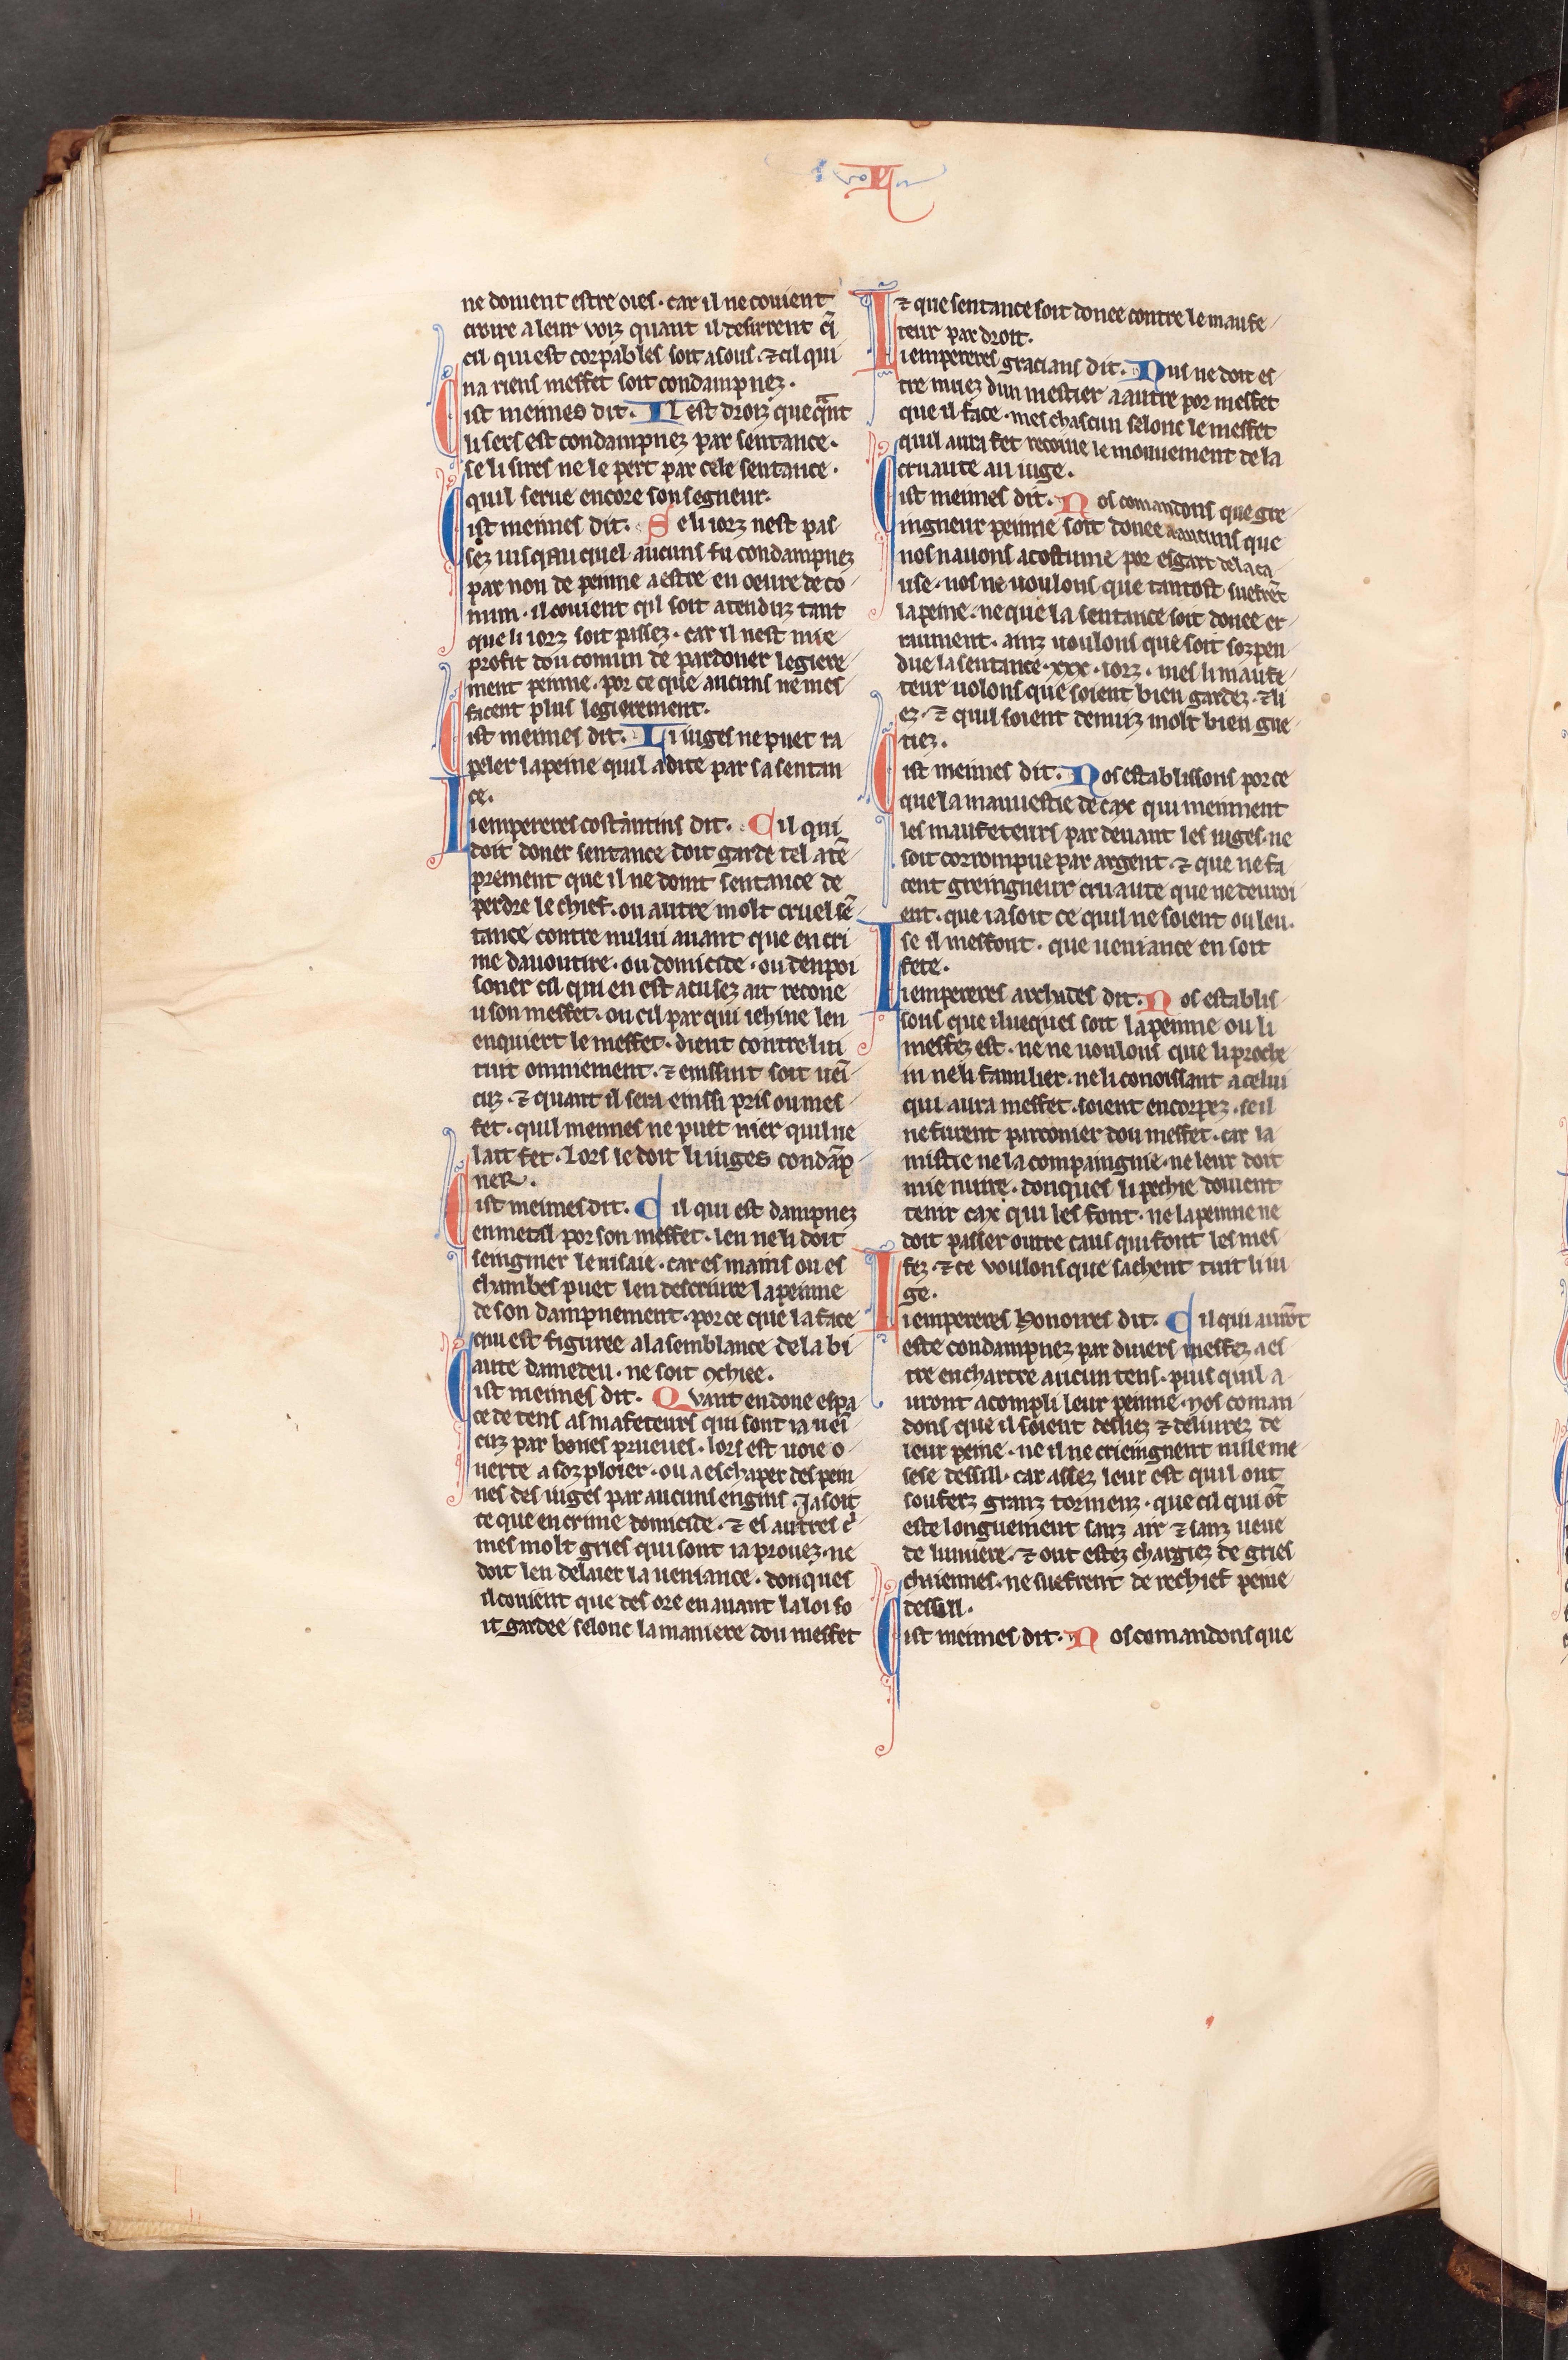 L
ne doiuent estre oies · car il ne couient
croire a leur voiz quant il desirrent q̃
cil qui est corpables soit asous · ⁊ cil qui
na riens meffet soit condampnez ·
Cist meimes dit · Il est droiz que qant
li sers est condampnez par sentance ·
se li sires ne le pert par cele sentance ·
quil serue encore son segneur ·
Cist meimes dit · Se li iorz nest pas
sez iusqau quel aucuns fu condampnez
par non de peinne a estre en oeure de co
mun · il couient qil soit atenduz tant
que li iorz soit passez · car il nest mie
profit dou comun de pardoner legiere
ment peinne · por ce que aucuns ne mes
facent plus legierement ·
Cist meimes dit · Li iuges ne puet ra
peler la peine quil a dite par sa sentan
ce ·
Li empereres costantins dit · Cil qui
doit doner sentance doit garde tel atẽ
prement que il ne doint sentance de
perdre le chief · ou autre molt cruel sẽ
tance contre nului auant que en cri
me dauoutire · ou domicide · ou denpoi
soner cil qui en est acusez ait recone
u son meffet · ou cil par qui iehine len
enquiert le meffet · dient contre lui
tuit onniement · ⁊ einssint soit ueĩ
cuz · ⁊ quant il sera einssi pris ou mes
fet · quil meimes ne puet nier quil ne
lait fet · Lors le doit li iuges condãp
ner ·
Cist meimes dit · Cil qui est dampnez
en metal por son meffet · len ne li doit
seingnier le uisaie · car es mains ou es
chambes puet len descriure la peinne
de son dampnement · por ce que la face
qui est figuree a la semblance de la bi
aute damedeu · ne soit ꝯchiee ·
Cist meimes dit · Quant en done espa
ce de tens as mafeteurs qui sont ia ueĩ
cuz par bones prueues · lors est uoie o
uerte a sozploier · ou a eschaper des pein
nes des iuges par aucuns engins · Ja soit
ce que en crime domicide · ⁊ es autres c͛
mes molt gries qui sont ia prouez · ne
doit len delaier la ueniance · donques
il couient que des ore en auant la loi so
it gardee selonc la maniere dou meffet
⁊ que sentance soit donee contre le maufe
teur par droit ·
Li empereres gracians dit · Nus ne doit es
tre muez dun mestier a autre por meffet
que il face · mes chascun selonc le meffet
quil aura fet recoiue le mouuement de la
cruaute au iuge ·
Cist meimes dit · Nos comandons que gre
ingneur peinne soit donee a aucuns que
nos nauons acostume por esgart de la ca
use · nos ne uoulons que tantost suefrẽt
la peine · ne que la sentance soit donee er
raument · ainz uoulons que soit sozpen
due la sentance · xxx · iorz · mes li maufe
teur uolons que soient bien gardez · ⁊ li
ez · ⁊ quil soient demuz molt bien gue
tiez ·
Cist meimes dit · Nos establissons por ce
que la mauuestie de cax qui meinnent
les maufeteurs par deuant les iuges · ne
soit corrompue par argent · ⁊ que ne fa
cent greingneur cruaute que ne deuroi
ent · que ia soit ce quil ne soient ou leu ·
se il meffont · que ueniance en soit
fete ·
Li empereres archades dit · Nos establis
sons que illueques soit la peinne ou li
meffez est · ne ne uoulons que li proche
in ne li familier · ne li conoissant a celui
qui aura meffet · soient encorpez · se il
ne furent parconier dou meffet · car la
mistie ne la compaingnie · ne leur doit
mie nuire · donques li pechie doiuent
tenir cax qui les font · ne la peinne ne
doit passer outre caus qui font les mes
fez · ⁊ ce voulons que sachent tuit li iu
ge ·
Li empereres honoires dit · Cil qui aurõt
este condampnez par diuers meffez a es
tre en chartre aucun tens · puis quil a
uront acompli leur peinne · Nos coman
dons que il soient desliez ⁊ deliurez de
leur peine · ne il ne crieingnent nule me
sese dessill · car assez leur est quil ont
souferz granz tormenz · que cil qui õt
este longuement sanz air ⁊ sanz ueue
de lumiere · ⁊ ont estez chargiez de gries
chaiennes · ne suefrent de rechief peine
dessill ·
Cist meimes dit · Nos comandons que